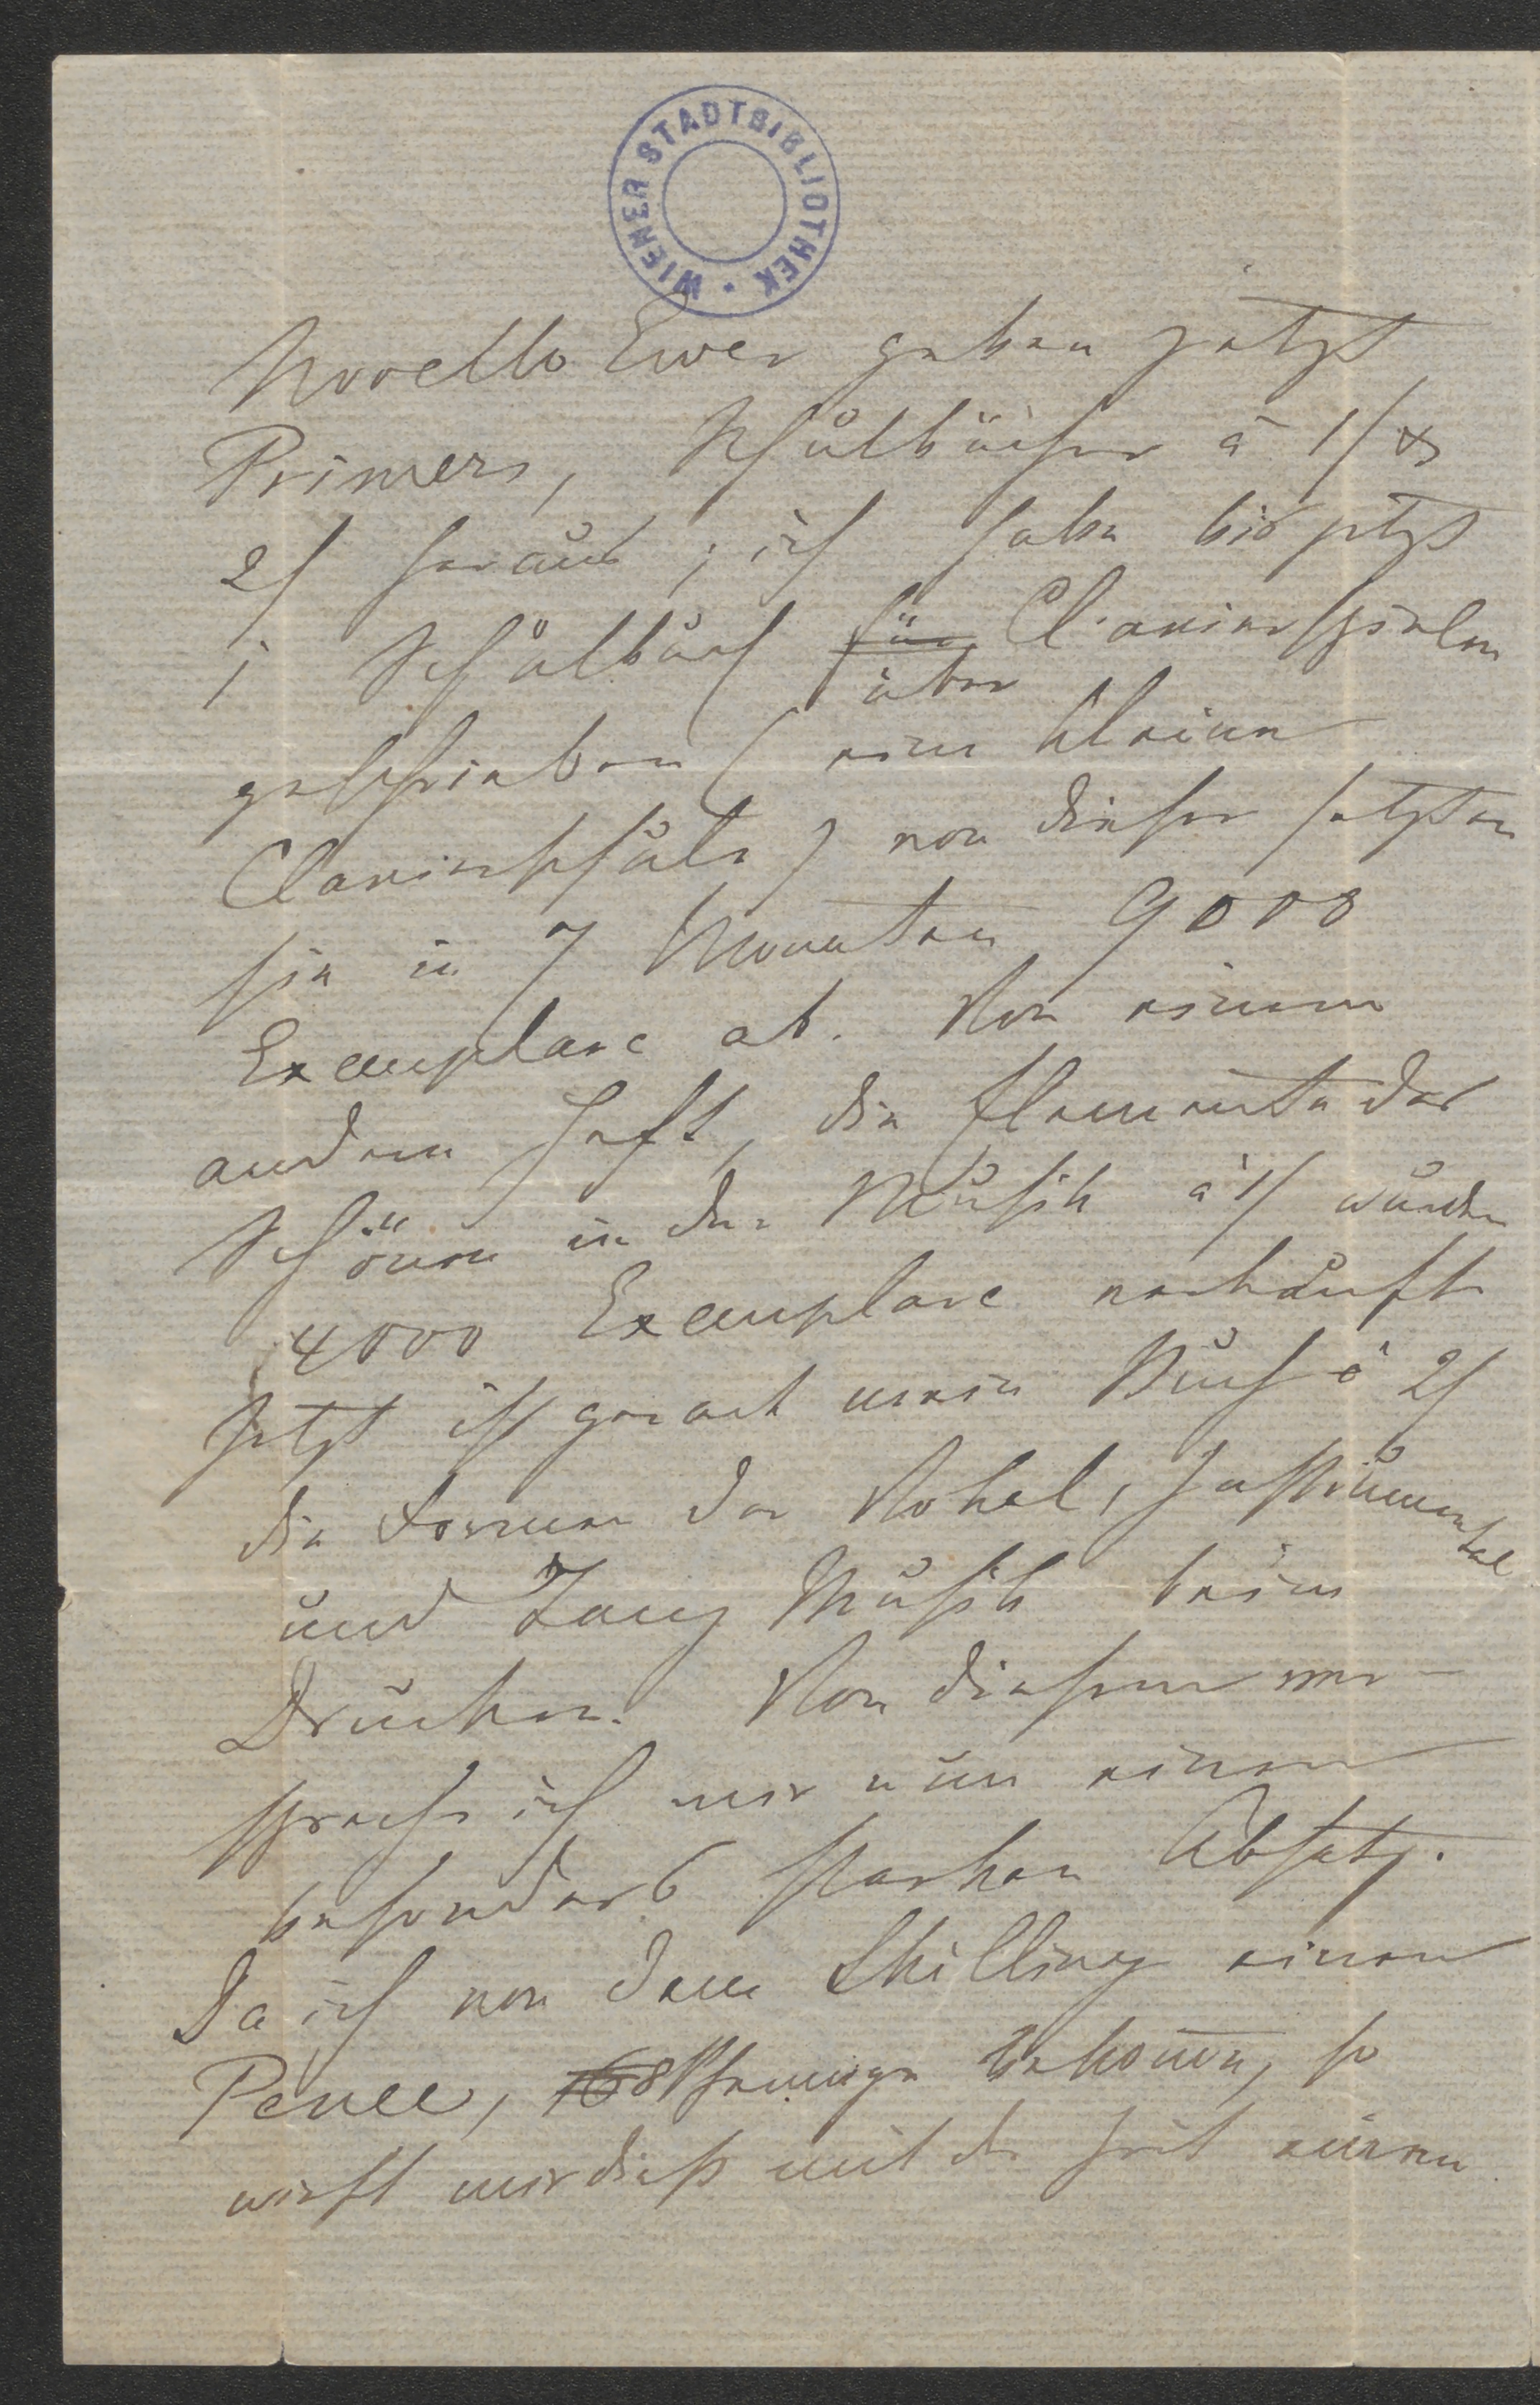 WIENER STADTBIBLIOTHEK
Novello Ewer geben jetzt
Primers, Schulbücher à 1/ &
2/ heraus; ich habe bis jetzt
1 Schulbuch für Clavierspielen
über
geschrieben (eine kleine
Clavierschule) von dieser setzten
sie in 7 Monaten 9000
Exemplare ab. Von einem
andern Heft, die Elemente des
Schönen in der Musik à 1/ wurden
4000 Exemplare verkauft
Jetzt ist gerade mein Buch à 2/
die Formen der Vokal, Instrumental
und Tanz Musik beim
Drucker. Von diesem ver-
spreche ich mir nun einen
besonders starken Absatz.
Da ich von dem Shilling einen
Penee, 8 Pfennige bekomme, so
wirft mir dieß mit der Zeit einen